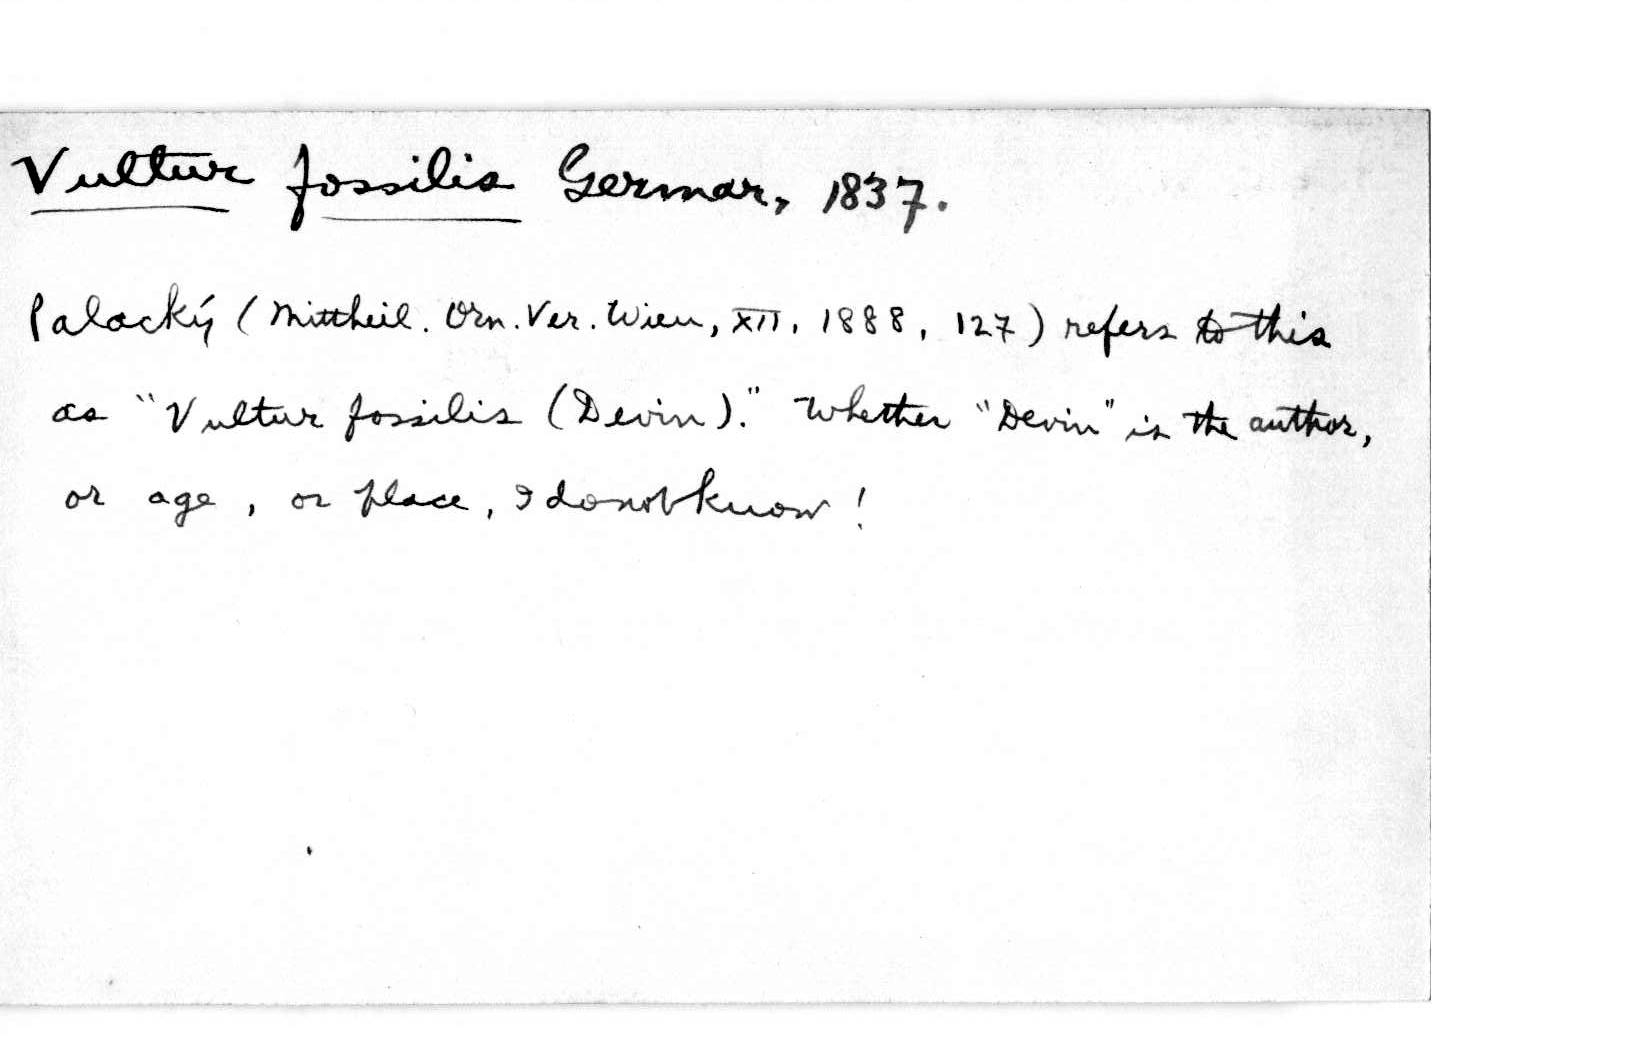 Vultur fossilis Germar, 1837.
Palacký (Mittheil. Orn. Ver. Wien, XII, 1888, 127) refers to this
as "Vultur fossilis (Devin)." Whether "Devin" is the author,
or age, or place, I do not know!